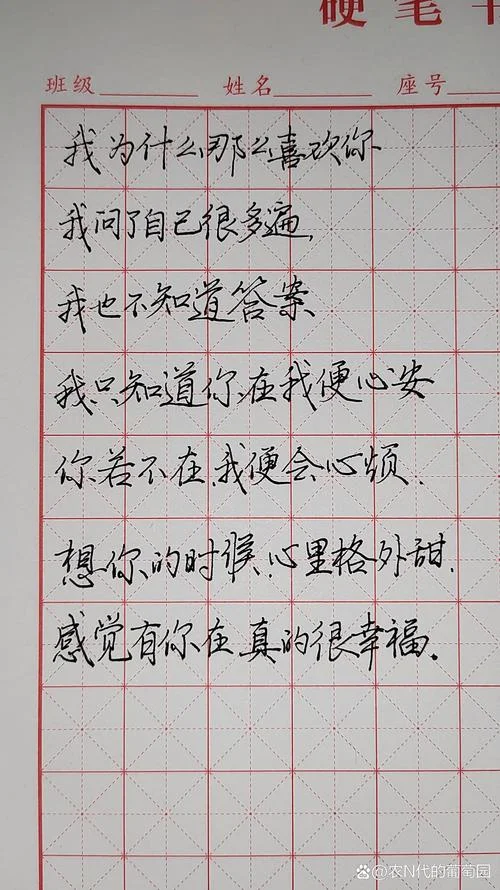 硬笔
班级 姓名 座号
我为什么那么喜欢你
我问了自己很多遍,
我也不知道答案
我只知道你在我便心安
你若不在,我便会心烦.
想你的时候,心里格外甜.
感觉有你在真的很幸福.
@农N代的葡萄园